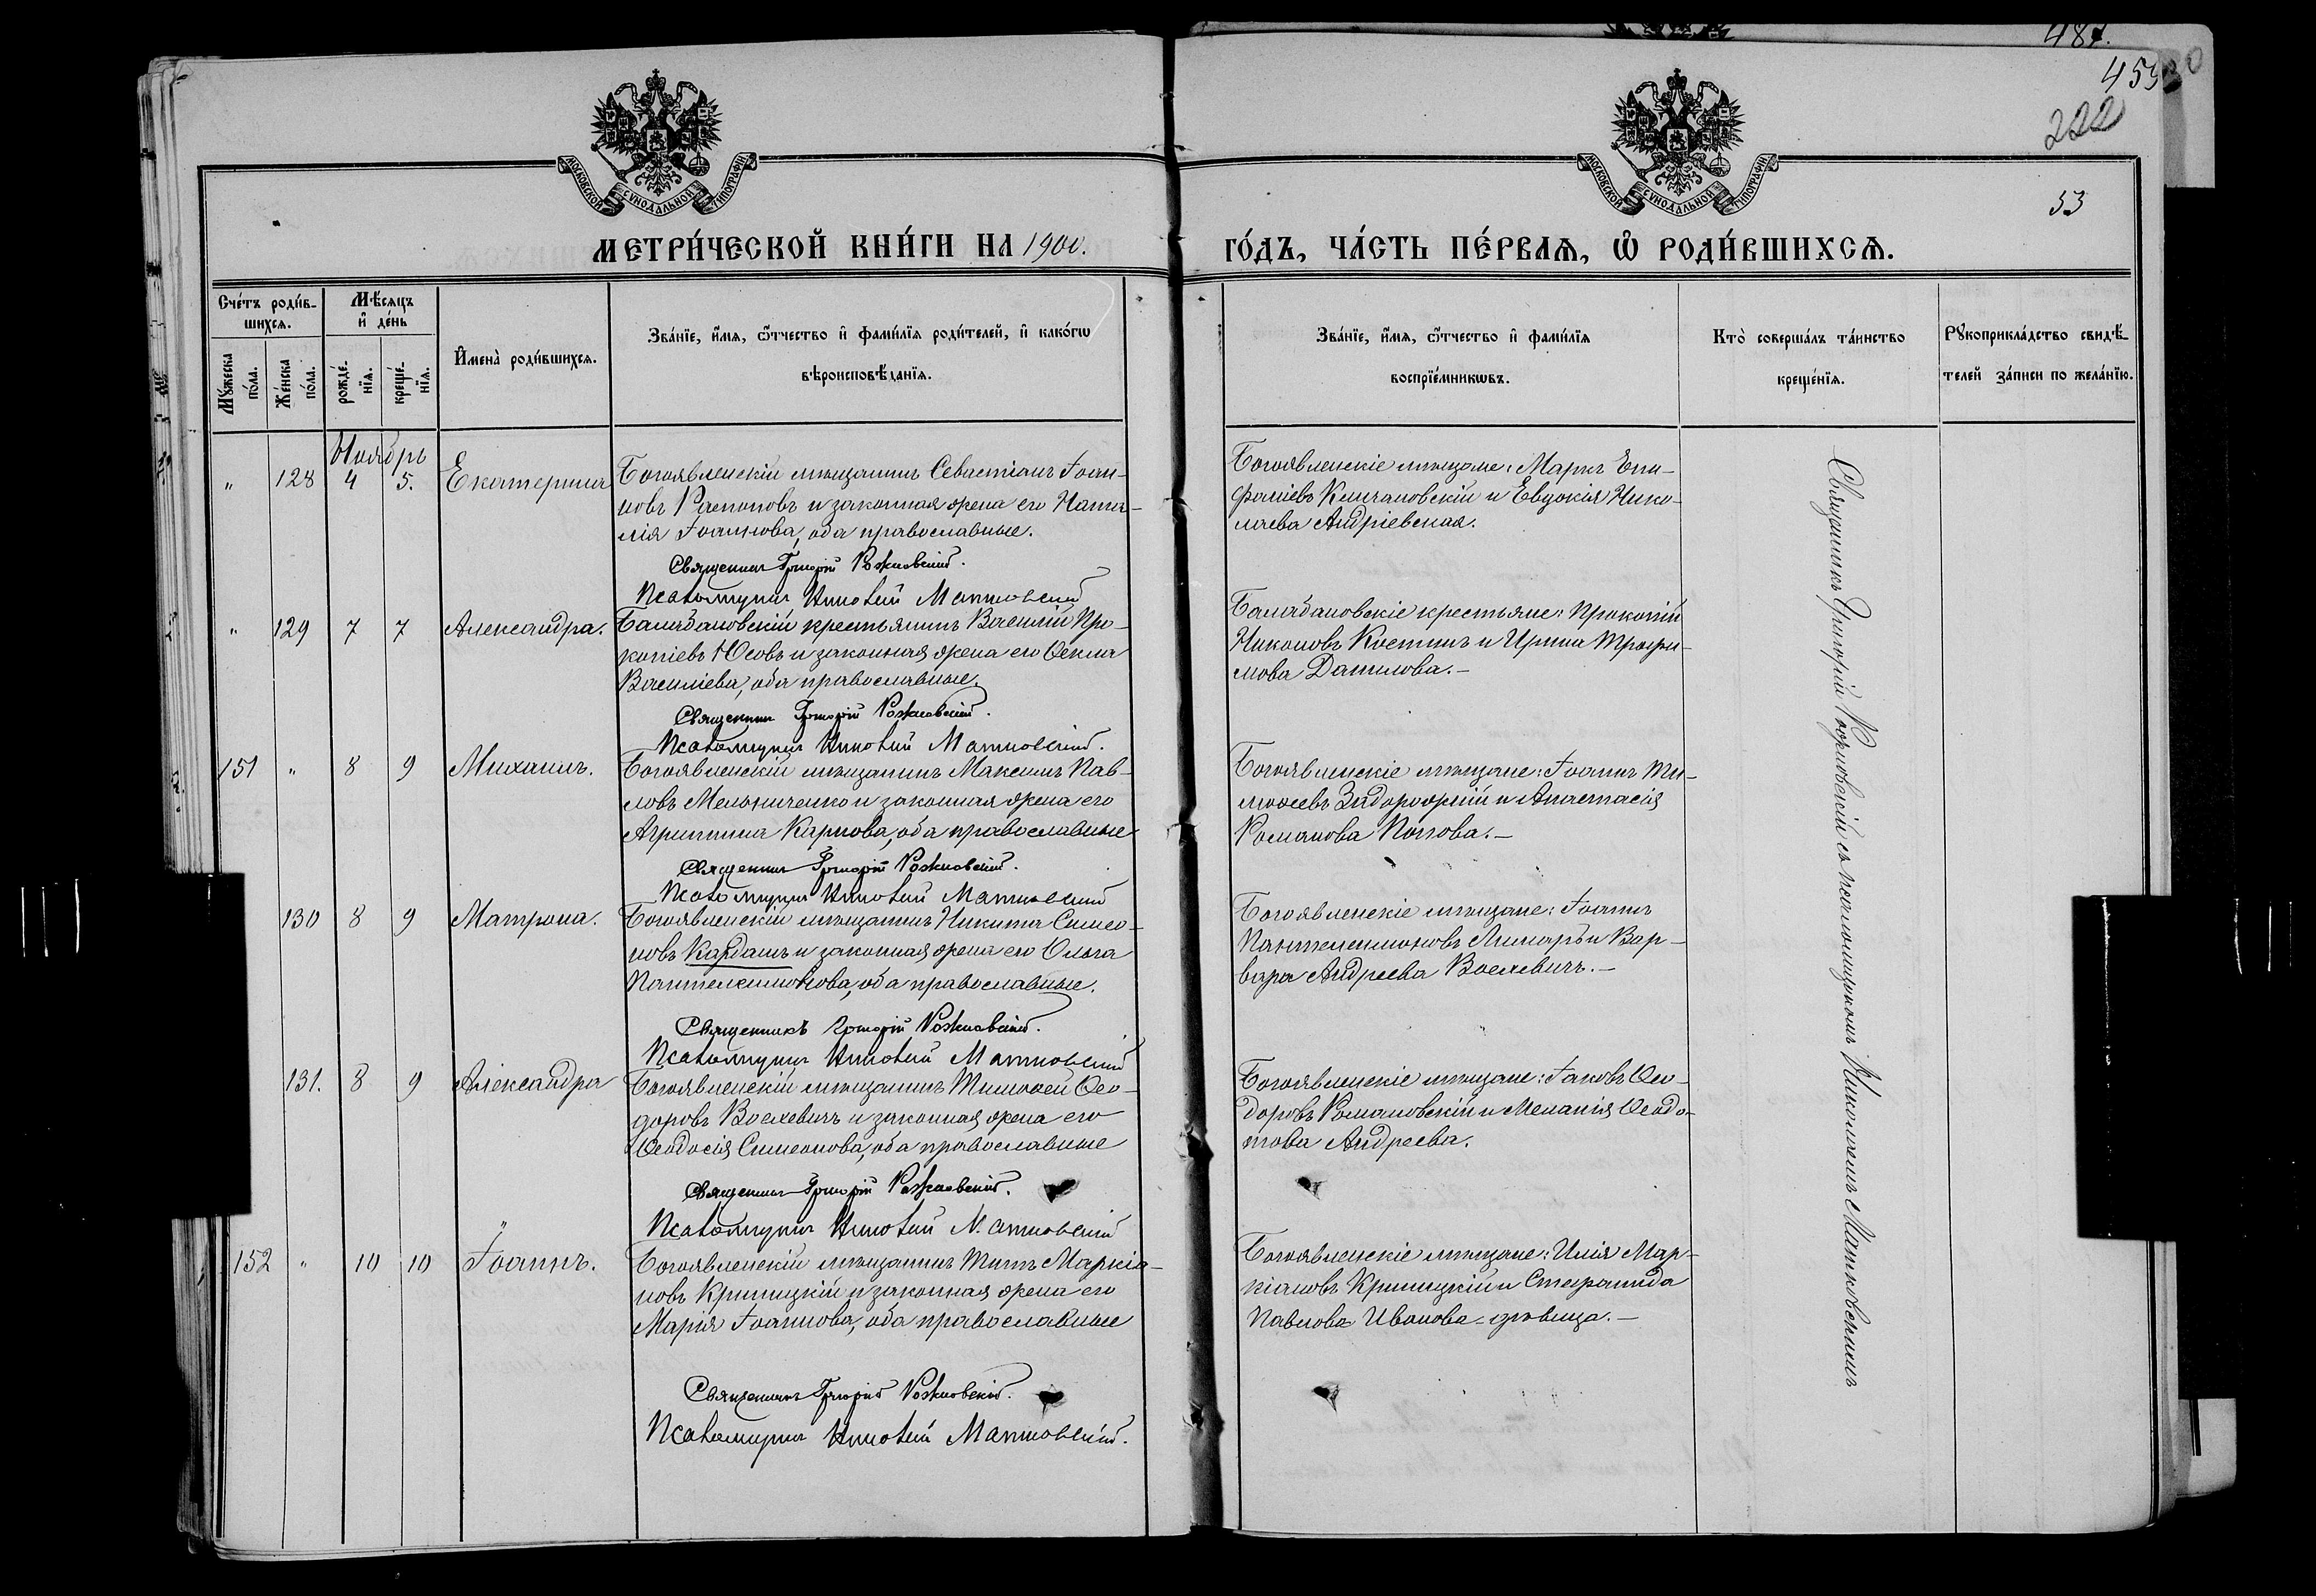 487.
459
222
53
МОСКОВСКОЙ СѴНОДАЛЬНОЙ ТИПОГРАФІИ
МОСКОВСКОЙ СѴНОДАЛЬНОЙ ТИПОГРАФІИ
МЕТРИ́ЧЕСКОЙ КНИ́ГИ НА 1900.
ГО́ДЪ, ЧА́СТЬ ПЕ́РВАѦ, Ѡ҆ РОДИ́ВШИХСѦ.
Сче́тъ роди́в-
шихсѧ.
Мꙋ́жеска
по́ла.
Же́нска
по́ла.
Мѣ́сѧцъ
и҆ де́нь
рожде́-
нїѧ.
креще́-
нїѧ.
И҆мена̀ роди́вшихсѧ.
Зва́нїе, и҆́мѧ, ѻ҆́тчество и҆ фами́лїѧ роди́телей, и҆ како́гѡ
вѣроисповѣ́данїѧ.
Зва́нїе, и҆́мѧ, ѻ҆́тчество и҆ фами́лїѧ
воспрїе́мникѡвъ.
Кто̀ соверша́лъ та́инство
креще́нїѧ.
Рꙋкоприкла́дство свидѣ́-
телей за́писи по жела́нїю.
Ноябрь
" 128 4 5. Екатерина
Богоявленскій мѣщанинъ Севастіанъ Іоан-
новъ Рапоновъ и законная жена его Ната-
лія Іоаннова, оба православные.
Священникъ Григорій Рожковскій.
Псаломщикъ Николай Матковскій
Богоявленскіе мѣщане: Марко Епи-
фаніевъ Климановскій и Евдокія Нико-
лаева Андріевская.
" 129 7 7 Александра.
Балабановскій крестьянинъ Василій Про-
копіевъ Юсовъ и законная жена его Ѳекла
Василіева, оба православные.
Священникъ Григорій Рожковскій.
Псаломщикъ Николай Матковскій.
Балабановскіе крестьяне: Прокопій
Никоновъ Костинъ и Ирина Трофи-
мова Данилова.-
151 " 8 9 Михаилъ.
Богоявленскій мѣщанинъ Максимъ Пав-
ловъ Мельниченко и законная жена его
Агриппина Карпова, оба православные
Священникъ Григорій Рожковскій.
Псаломщикъ Николай Матковскій
Богоявленскіе мѣщане: Іоаннъ Ти-
моѳеевъ Задорожній и Анастасія
Романова Попова.-
130 8 9 Матрона.
Богоявленскій мѣщанинъ Никита Симео-
новъ Кардашъ и законная жена его Ольга
Пантелеимонова, оба православные.
Священникъ Григорій Рожковскій.
Псаломщикъ Николай Матковскій
Богоявленскіе мѣщане: Іоаннъ
Пантелеимоновъ Лимарь и Вар-
вара Андреева Воехевичъ.-
131. 8 9 Александра
Богоявленскій мѣщанинъ Тимоѳей Ѳео-
доровъ Воехевичъ и законная жена его
Ѳеодосія Симеонова, оба православные
Священникъ Григорій Рожковскій.
Псаломщикъ Николай Матковскій
Богоявленскіе мѣщане: Іаковъ Ѳео-
доровъ Романовскій и Меланія Ѳеодо-
това Андреева.
152 " 10 10 Іоаннъ.
Богоявленскій мѣщанинъ Титъ Маркіа-
новъ Криницкій и законная жена его
Марія Іоаннова, оба православные
Священникъ Григорій Рожковскій.
Псаломщикъ Николай Матковскій.
Богоявленскіе мѣщане: Илія Мар-
кіановъ Криницкій и Стефанида
Павлова Иванова-дѣвица.-
Священникъ Григорій Рожковскій съ псаломщикомъ Николаемъ Матковскимъ